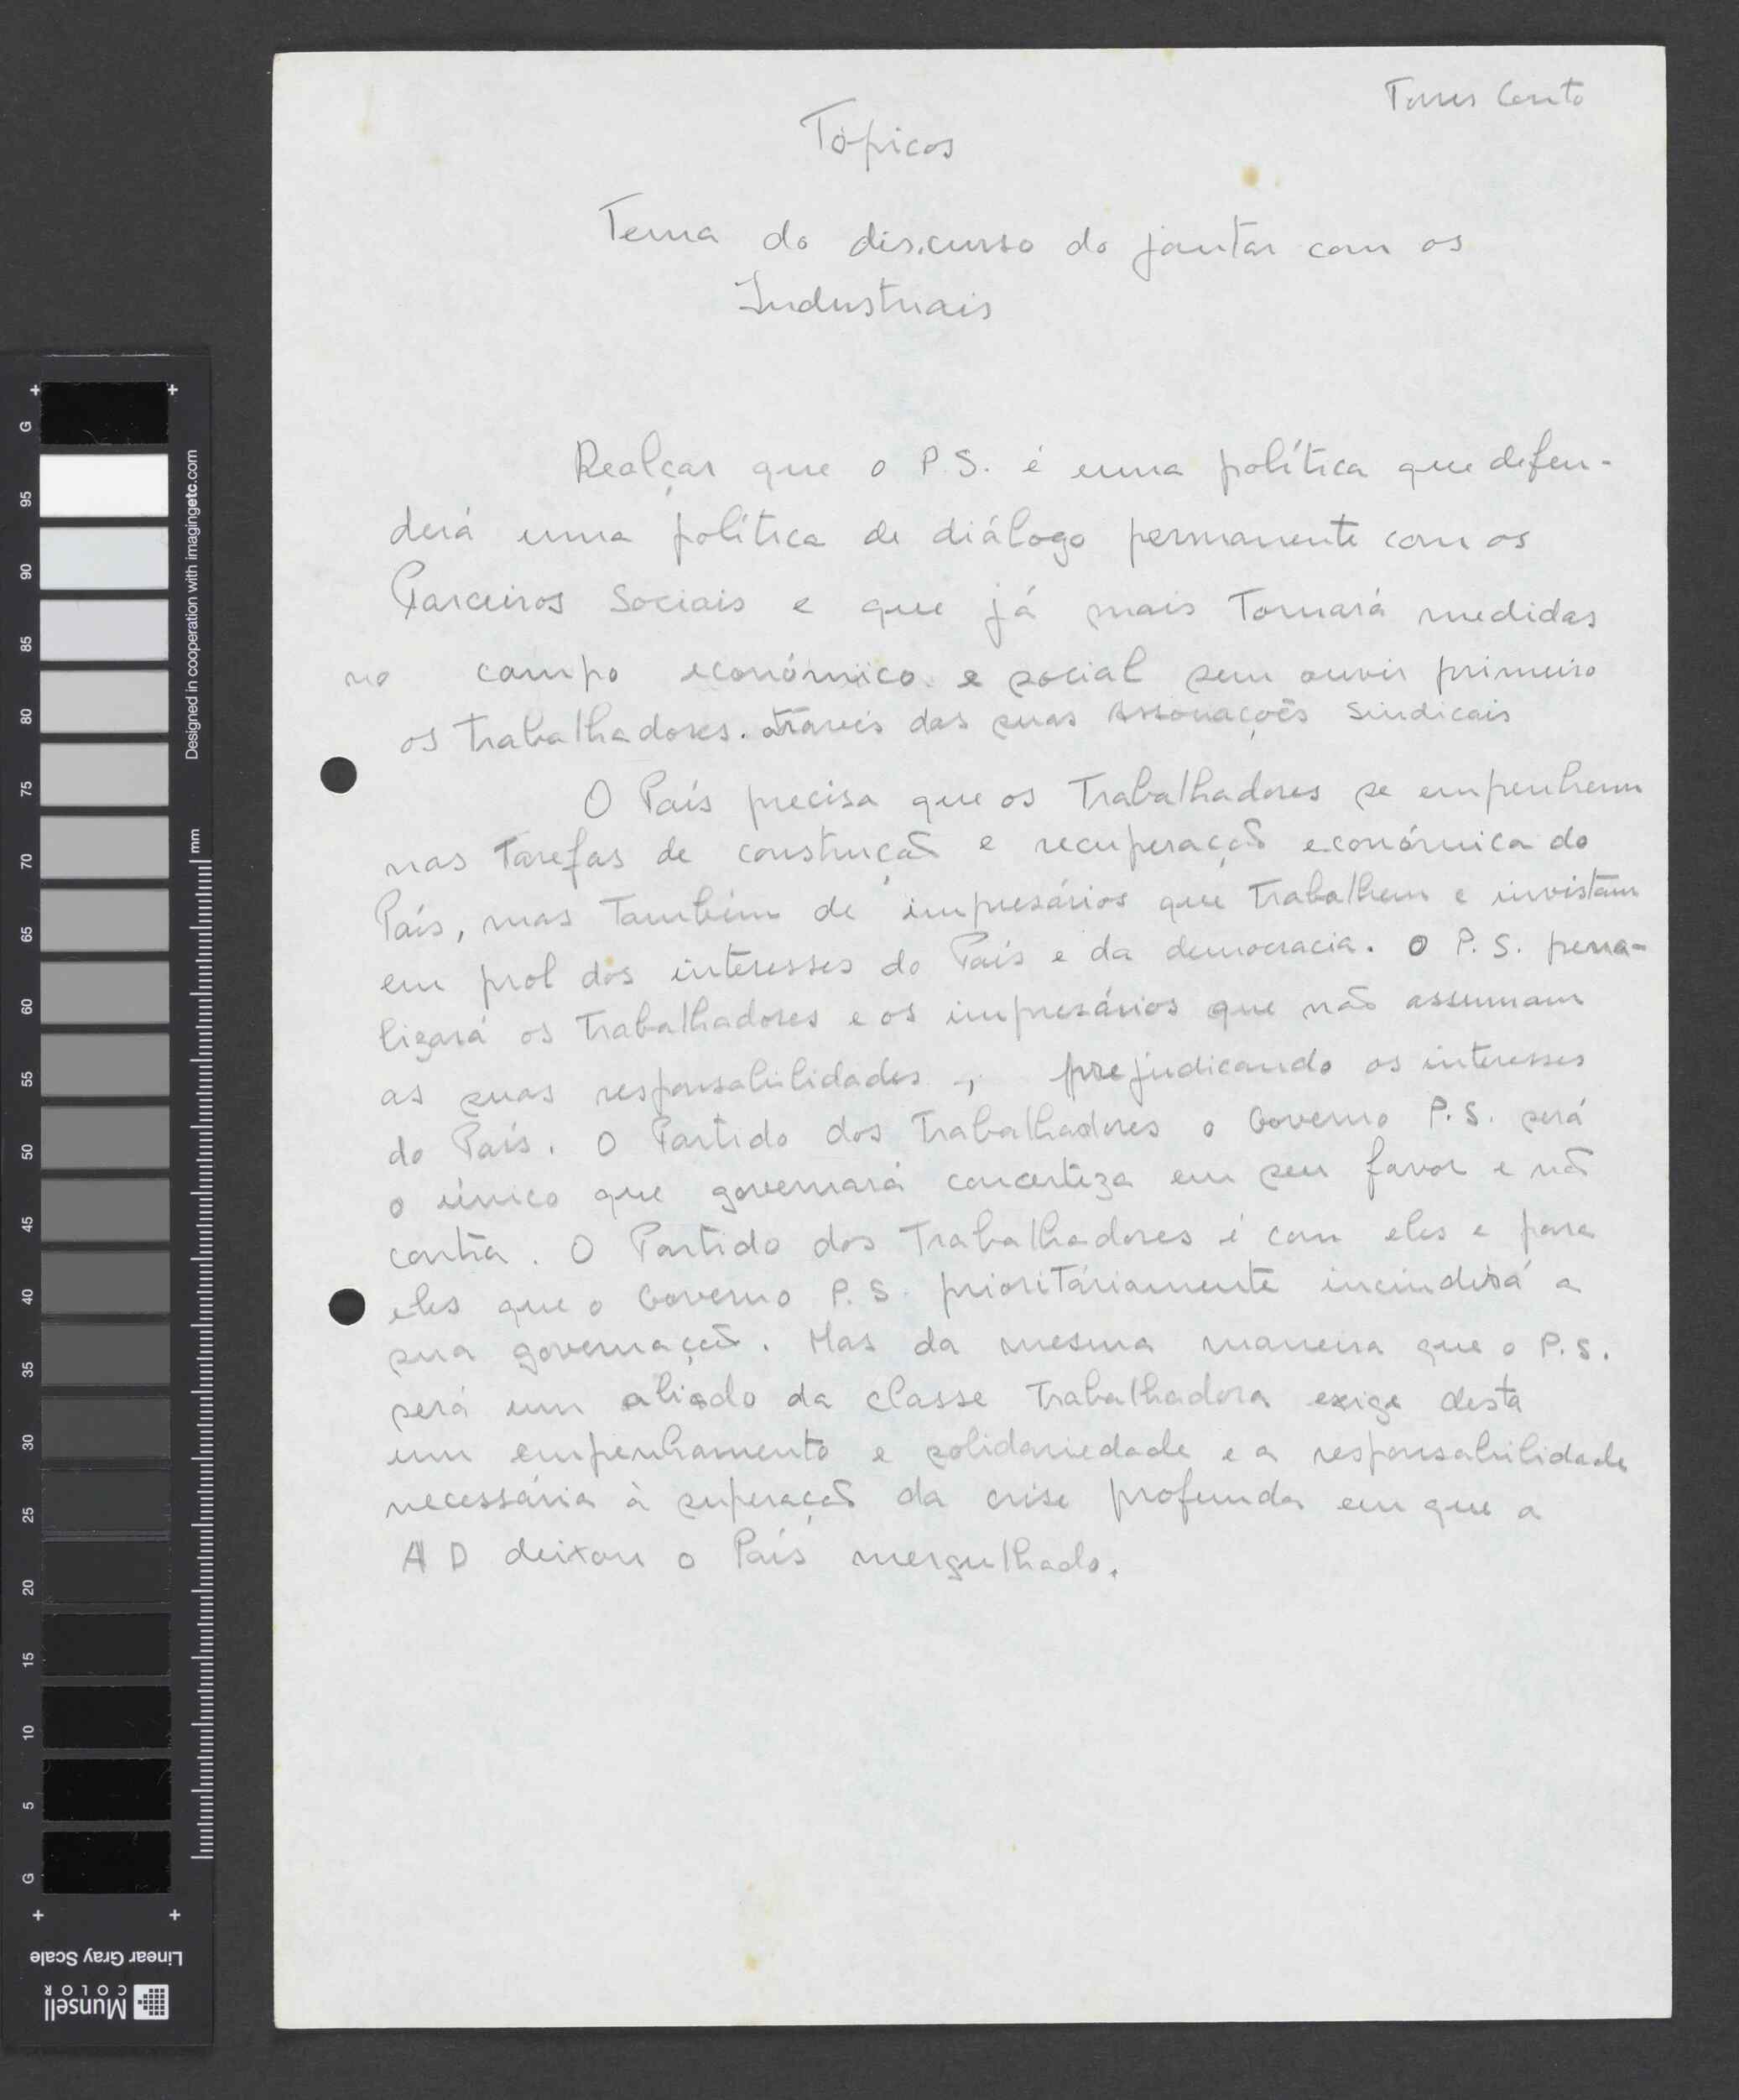 Torres Couto
Tópicos
Tema do discurso do jantar com os
Industriais
Realçar que o P.S. é uma política que defen-
derá uma política de diálogo permanente com os
Parceiros Sociais e que já mais Tomará medidas
no campo económico e social sem ouvir primeiro
os trabalhadores. através das suas Associações Sindicais
O País precisa que os Trabalhadores se empenhem
nas Tarefas de construção e recuperação económica do
País, mas Também de impresários que Trabalhem e invistam
em prol dos interesses do País e da democracia. O P.S. pena-
lizará os Trabalhadores e os impresários que não assumam
as suas responsabilidades, prejudicando os interesses
do País. O Partido dos Trabalhadores o Governo P.S. será
o único que governará concerteza em seu favor e não
contra. O Partido dos Trabalhadores é com eles e para
eles que o Governo P.S. prioritáriamente incindirá a
sua governação. Mas da mesma maneira que o P.S.
será um aliado da classe Trabalhadora exige desta
um empenhamento e solidariedade e a responsabilidade
necessária à superação da crise profunda em que a
AD deixou o País mergulhado.
G
95
90
85
80
75
70
65
60
55
50
45
40
35
30
25
20
15
10
5
G
Designed in cooperation with imagingetc.com
mm
Linear Gray Scale
Munsell
COLOR